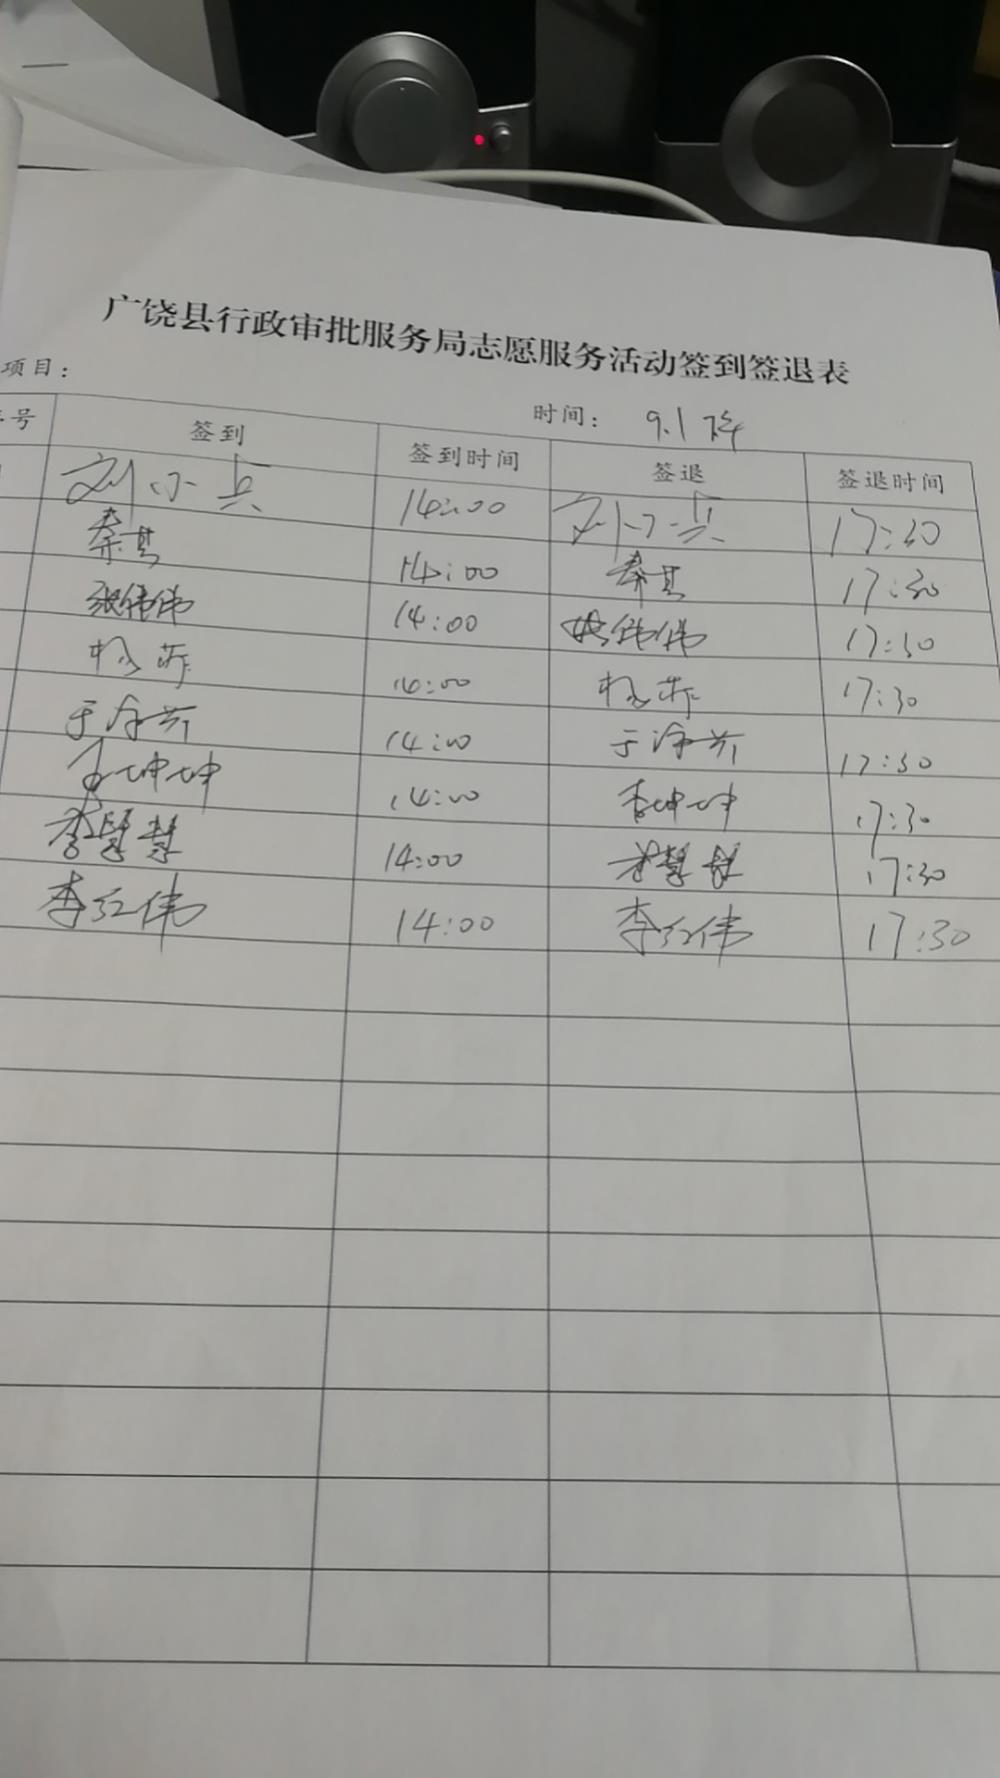 广饶县行政审批服务局志愿服务活动签到签退表
项目：
时间： 9.1 下午
号 签到 签到时间 签退 签退时间
刘小兵 14:00 刘小兵 17:30
秦其 14:00 秦其 17:30
张伟伟 14:00 张伟伟 17:30
杨 14:00 杨 17:30
于 14:00 于 17:30
李坤坤 14:00 李坤坤 17:30
李慧慧 14:00 李慧慧 17:30
李红伟 14:00 李红伟 17:30